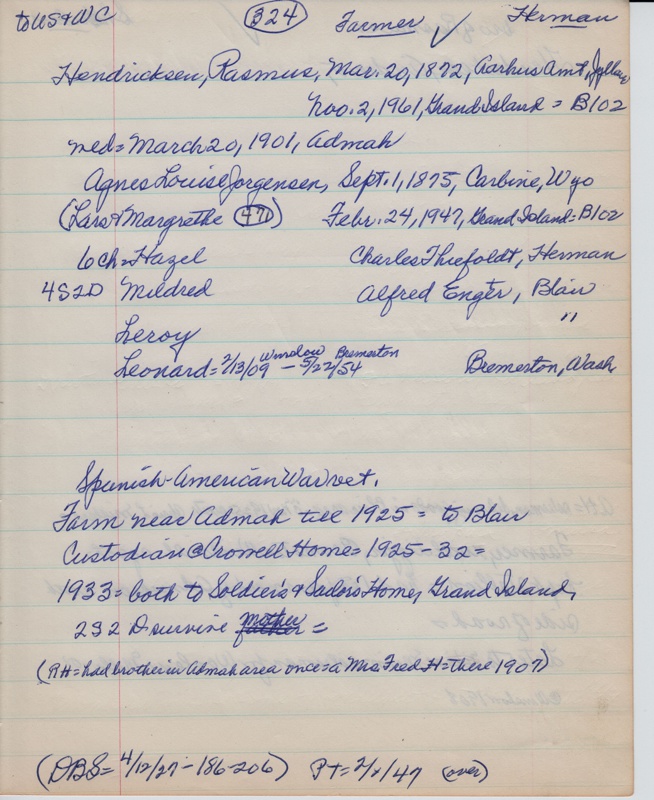 to US & WC 324 Farmer ✓ Herman
Hendricksen, Rasmus, Mar. 20, 1872, Aarhus Amt, Jylland
Nov. 2, 1961, Grand Island = B102
med = March 20, 1901, Admah
Agnes Louise Jorgensen, Sept. 1, 1875, Carbine, Wyo
(Lars & Margrethe 471) Febr. 24, 1947, Grand Island = B102
6 ch = Hazel Charles Thiefoldt, Herman
4S2D Mildred Alfred Enger, Blair
Leroy "
Winslow Bremerton
Leonard = 2/13/09 - 5/22/54 Bremerton, Wash
Spanish-American War vet.
Farm near Admah till 1925 = to Blair
Custodian @ Crowell Home = 1925-32 =
1933 = both to Soldier's & Sailor's Home, Grand Island,
2S2D survive mother =
(RH = had brother in Admah area once = a Mrs Fred H = there 1907)
(DBS = 4/12/27 - 186-206) PT = 2/ /47 (over)